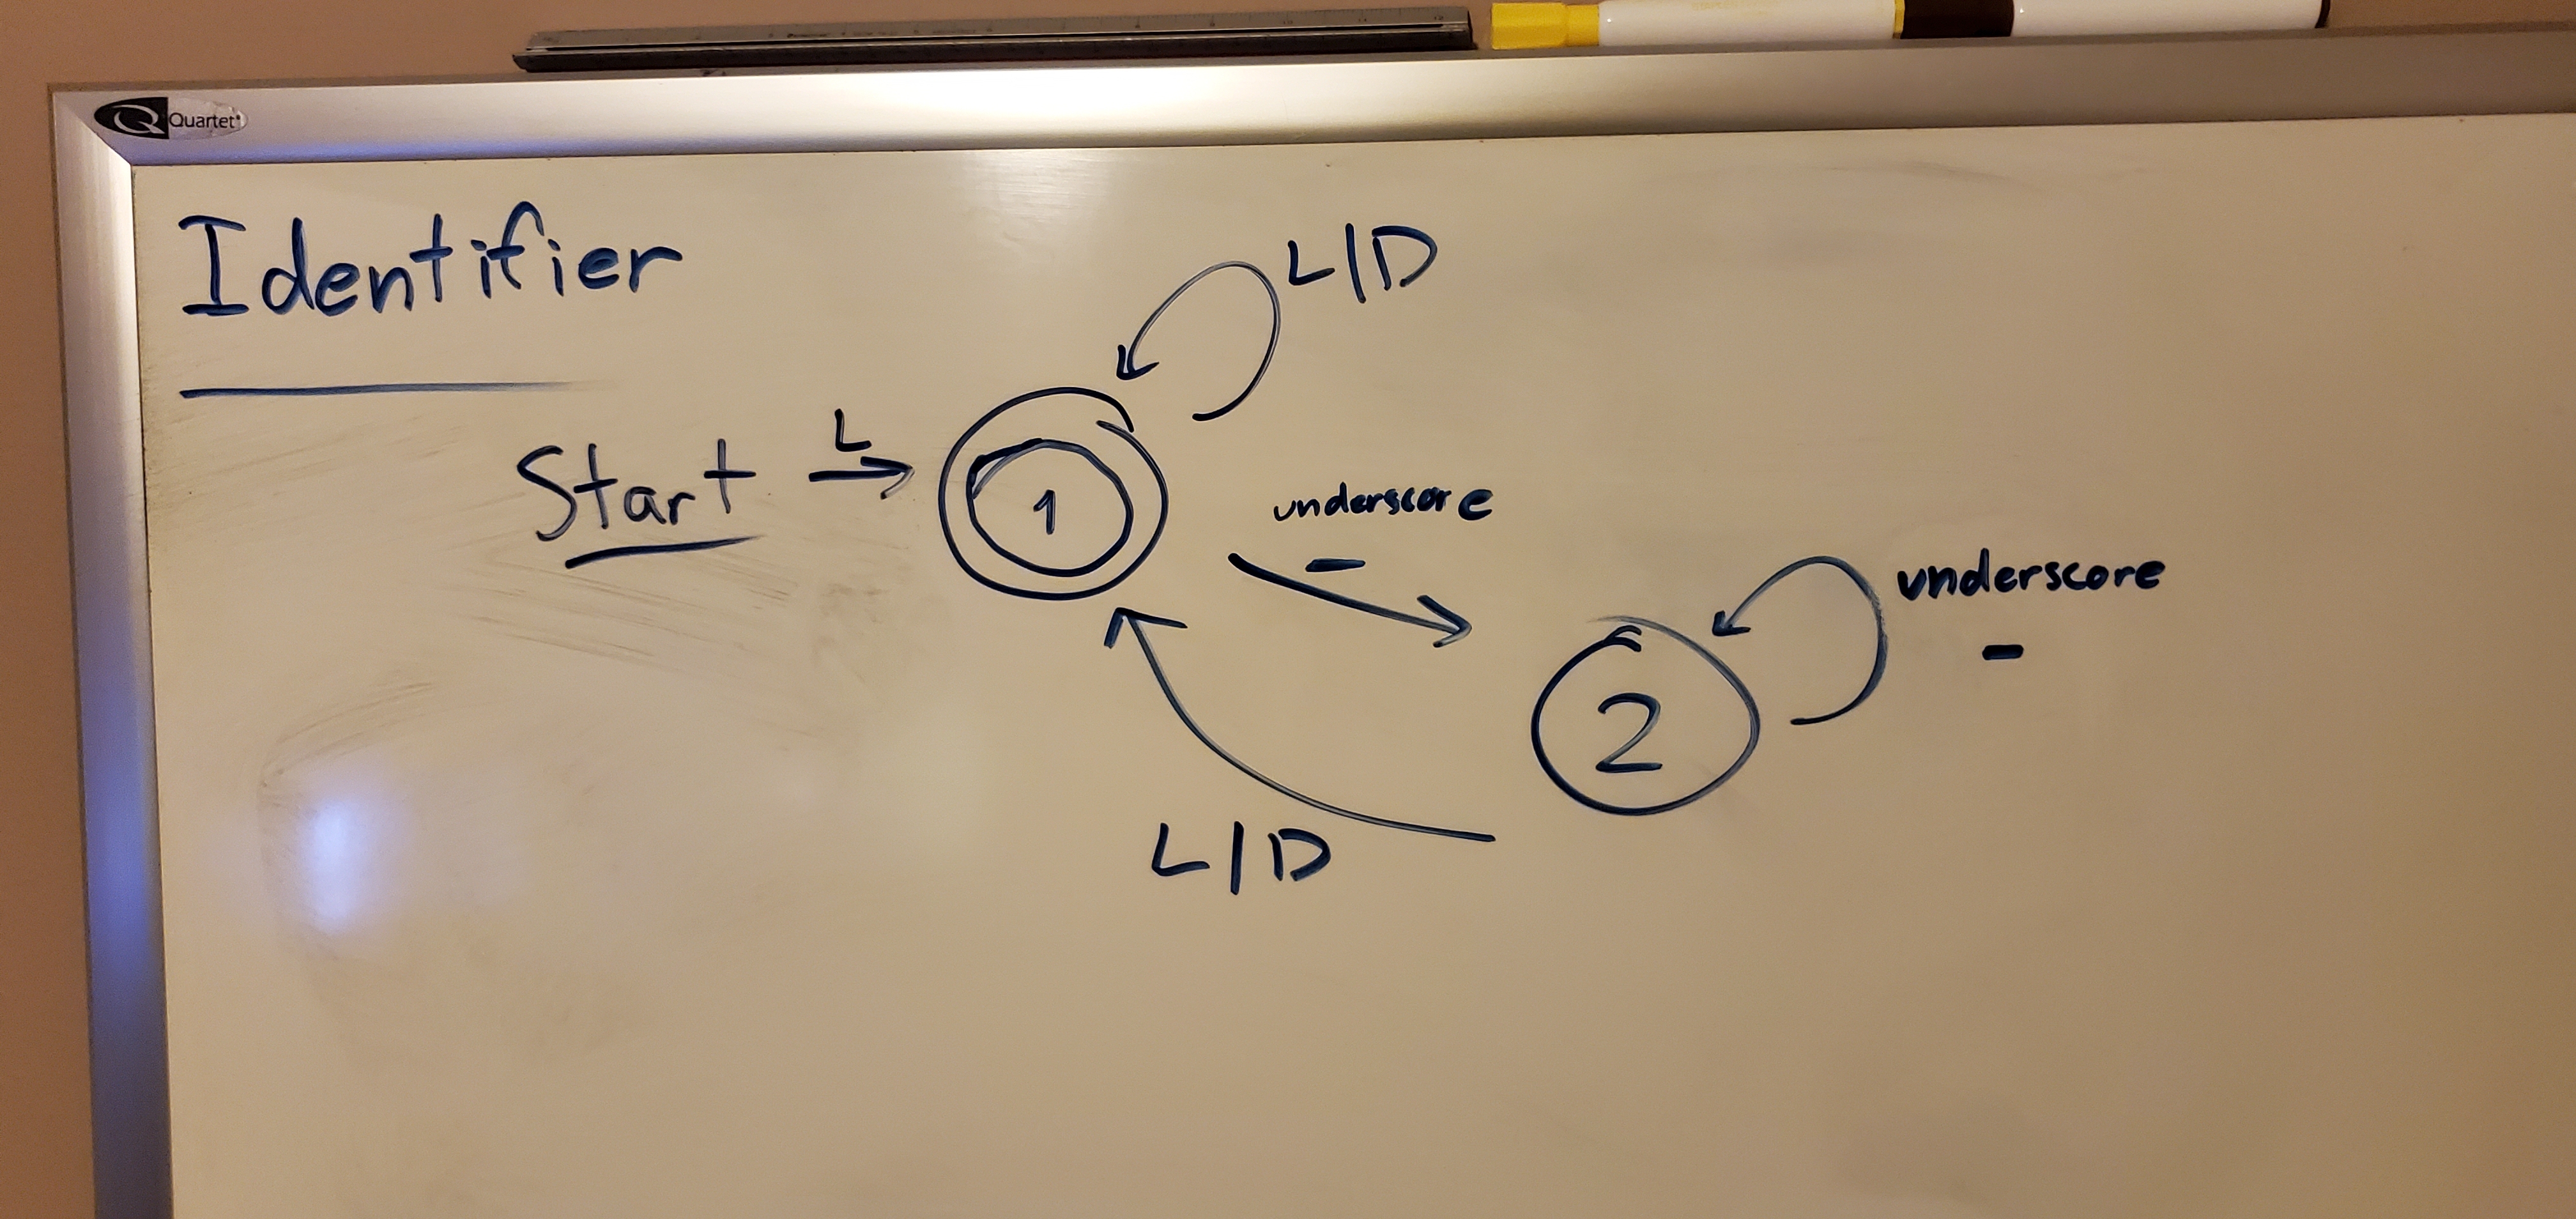 Quartet
Identifier
L/D
Start
L
1
underscore
_
underscore
_
2
L/D